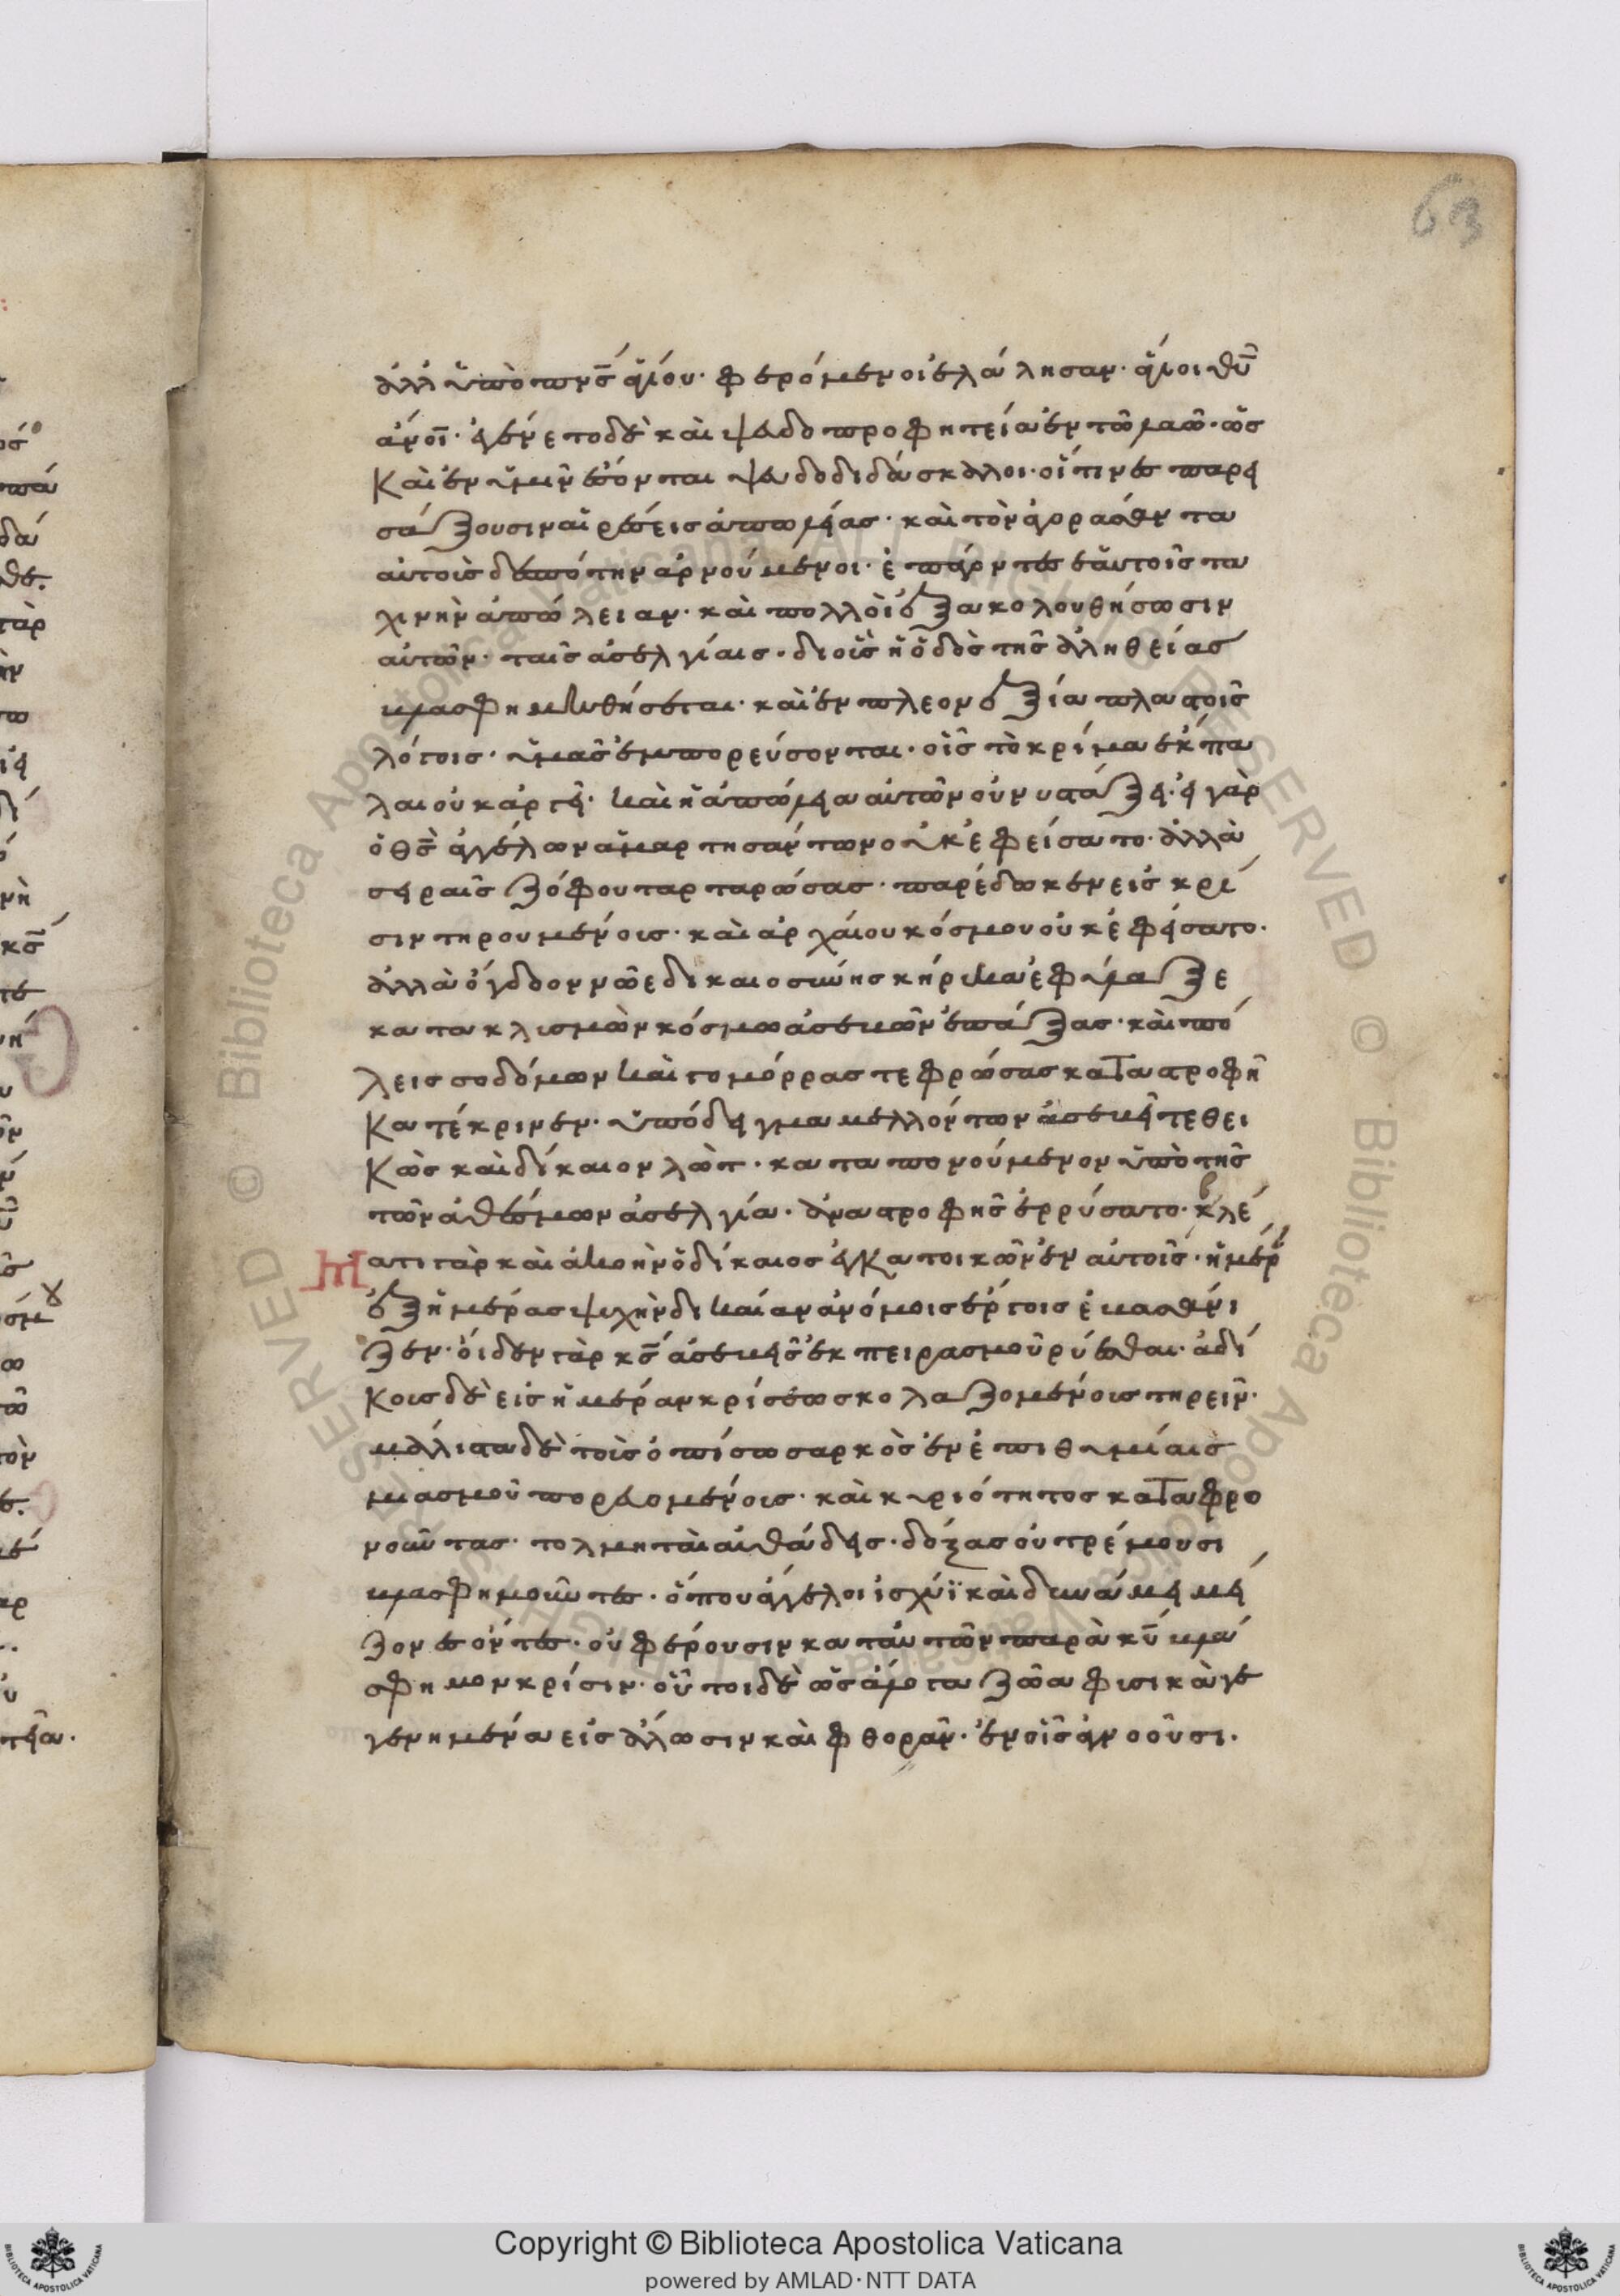 63
ἀλλ ὑπὸ πνς ἁγίου· φερόμενοι ἐλάλησαν· ἅγιοι θυ
ἄνοι· ἐγένετο δὲ καὶ ψευδοπροφητεία ἐν τῶ λαῶ· ὡς
καὶ ἐν ὑμῖν ἔσονται ψευδοδιδάσκαλοι· οἵτινες παρει
σάξουσιν αἱρέσεις ἀπωλείας· καὶ τὸν ἀγοράσαντα
αὐτοὺς δεσπότην ἀρνούμενοι· ἐπάγοντες ἑαυτοῖς τα
χινὴν ἀπώλειαν· καὶ πολλοὶ ἐξακολουθήσωσιν
αὐτῶν· ταῖς ἀσελγίαις· δι οὓς ἡ ὁδὸς τῆς ἀληθείας
βλασφημηθήσεται· καὶ ἐν πλεονεξία πλαστοῖς
λόγοις· ὑμᾶς ἐμπορεύσονται· οἷς τὸ κρίμα ἔκπα
λαι οὐκ ἀργεῖ· καὶ ἡ ἀπώλεια αὐτῶν οὐ νυστάξει· εἰ γὰρ
ὁ θς ἀγγέλων ἁμαρτησάντων οὐκ ἐφείσατο· ἀλλὰ
σειραῖς ζόφου ταρταρώσας· παρέδωκεν εἰς κρί
σιν τηρουμένους· καὶ ἀρχαίου κόσμου οὐκ ἐφείσατο·
ἀλλὰ ὄγδοον νῶε δικαιοσύνης κήρικα ἐφύλαξε
κατακλισμὸν κόσμω ἀσεβῶν ἐπάξας· καὶ πό
λεις σοδόμων καὶ γομόρρας τεφρώσας καταστροφῆ
κατέκρινεν· ὑπόδειγμα μελλόντων ἀσεβεῖ τεθει
κὼς καὶ δίκαιον λὼτ· καταπονούμενον ὑπὸ τῆς
τῶν ἀθέσμων ἀσελγία· ἀναστροφῆς ἐρρύσατο· βλέ
ματι γὰρ καὶ ἀκοὴν ὁ δίκαιος ἐγκατοικῶν ἐν αὐτοῖς· ἡμέρ
ἐξ ἡμέρας ψυχὴν δικαίαν ἀνόμοις ἔργοις ἐβασάνι
ζεν· οἶδεν γὰρ κς ἀσεβεῖς ἐκ πειρασμοῦ ρύεσθαι· ἀδί
κοις δὲ εἰς ἡμέραν κρίσεως κολαζομένους τηρεῖν·
μάλιστα δὲ τοὺς ὀπίσω σαρκὸς ἐν ἐπιθυμίαις
μιασμοῦ πορευομένοις· καὶ κυριότητος καταφρο
νοῦντας· τολμηταὶ αὐθάδεις· δόξας οὐ τρέμουσι
βλασφημοῦντες· ὅπου ἄγγελοι ἰσχύϊ καὶ δυνάμει μεί
ζονες ὄντες· οὐ φέρουσιν κατ αὐτῶν παρὰ κυ βλά
σφημον κρίσιν· οὗτοι δὲ ὡς ἄλογα ζῶα φισικὰ γε
γενημένα εἰς ἅλωσιν καὶ φθορὰν· ἐν οἷς ἀγνοοῦσι·